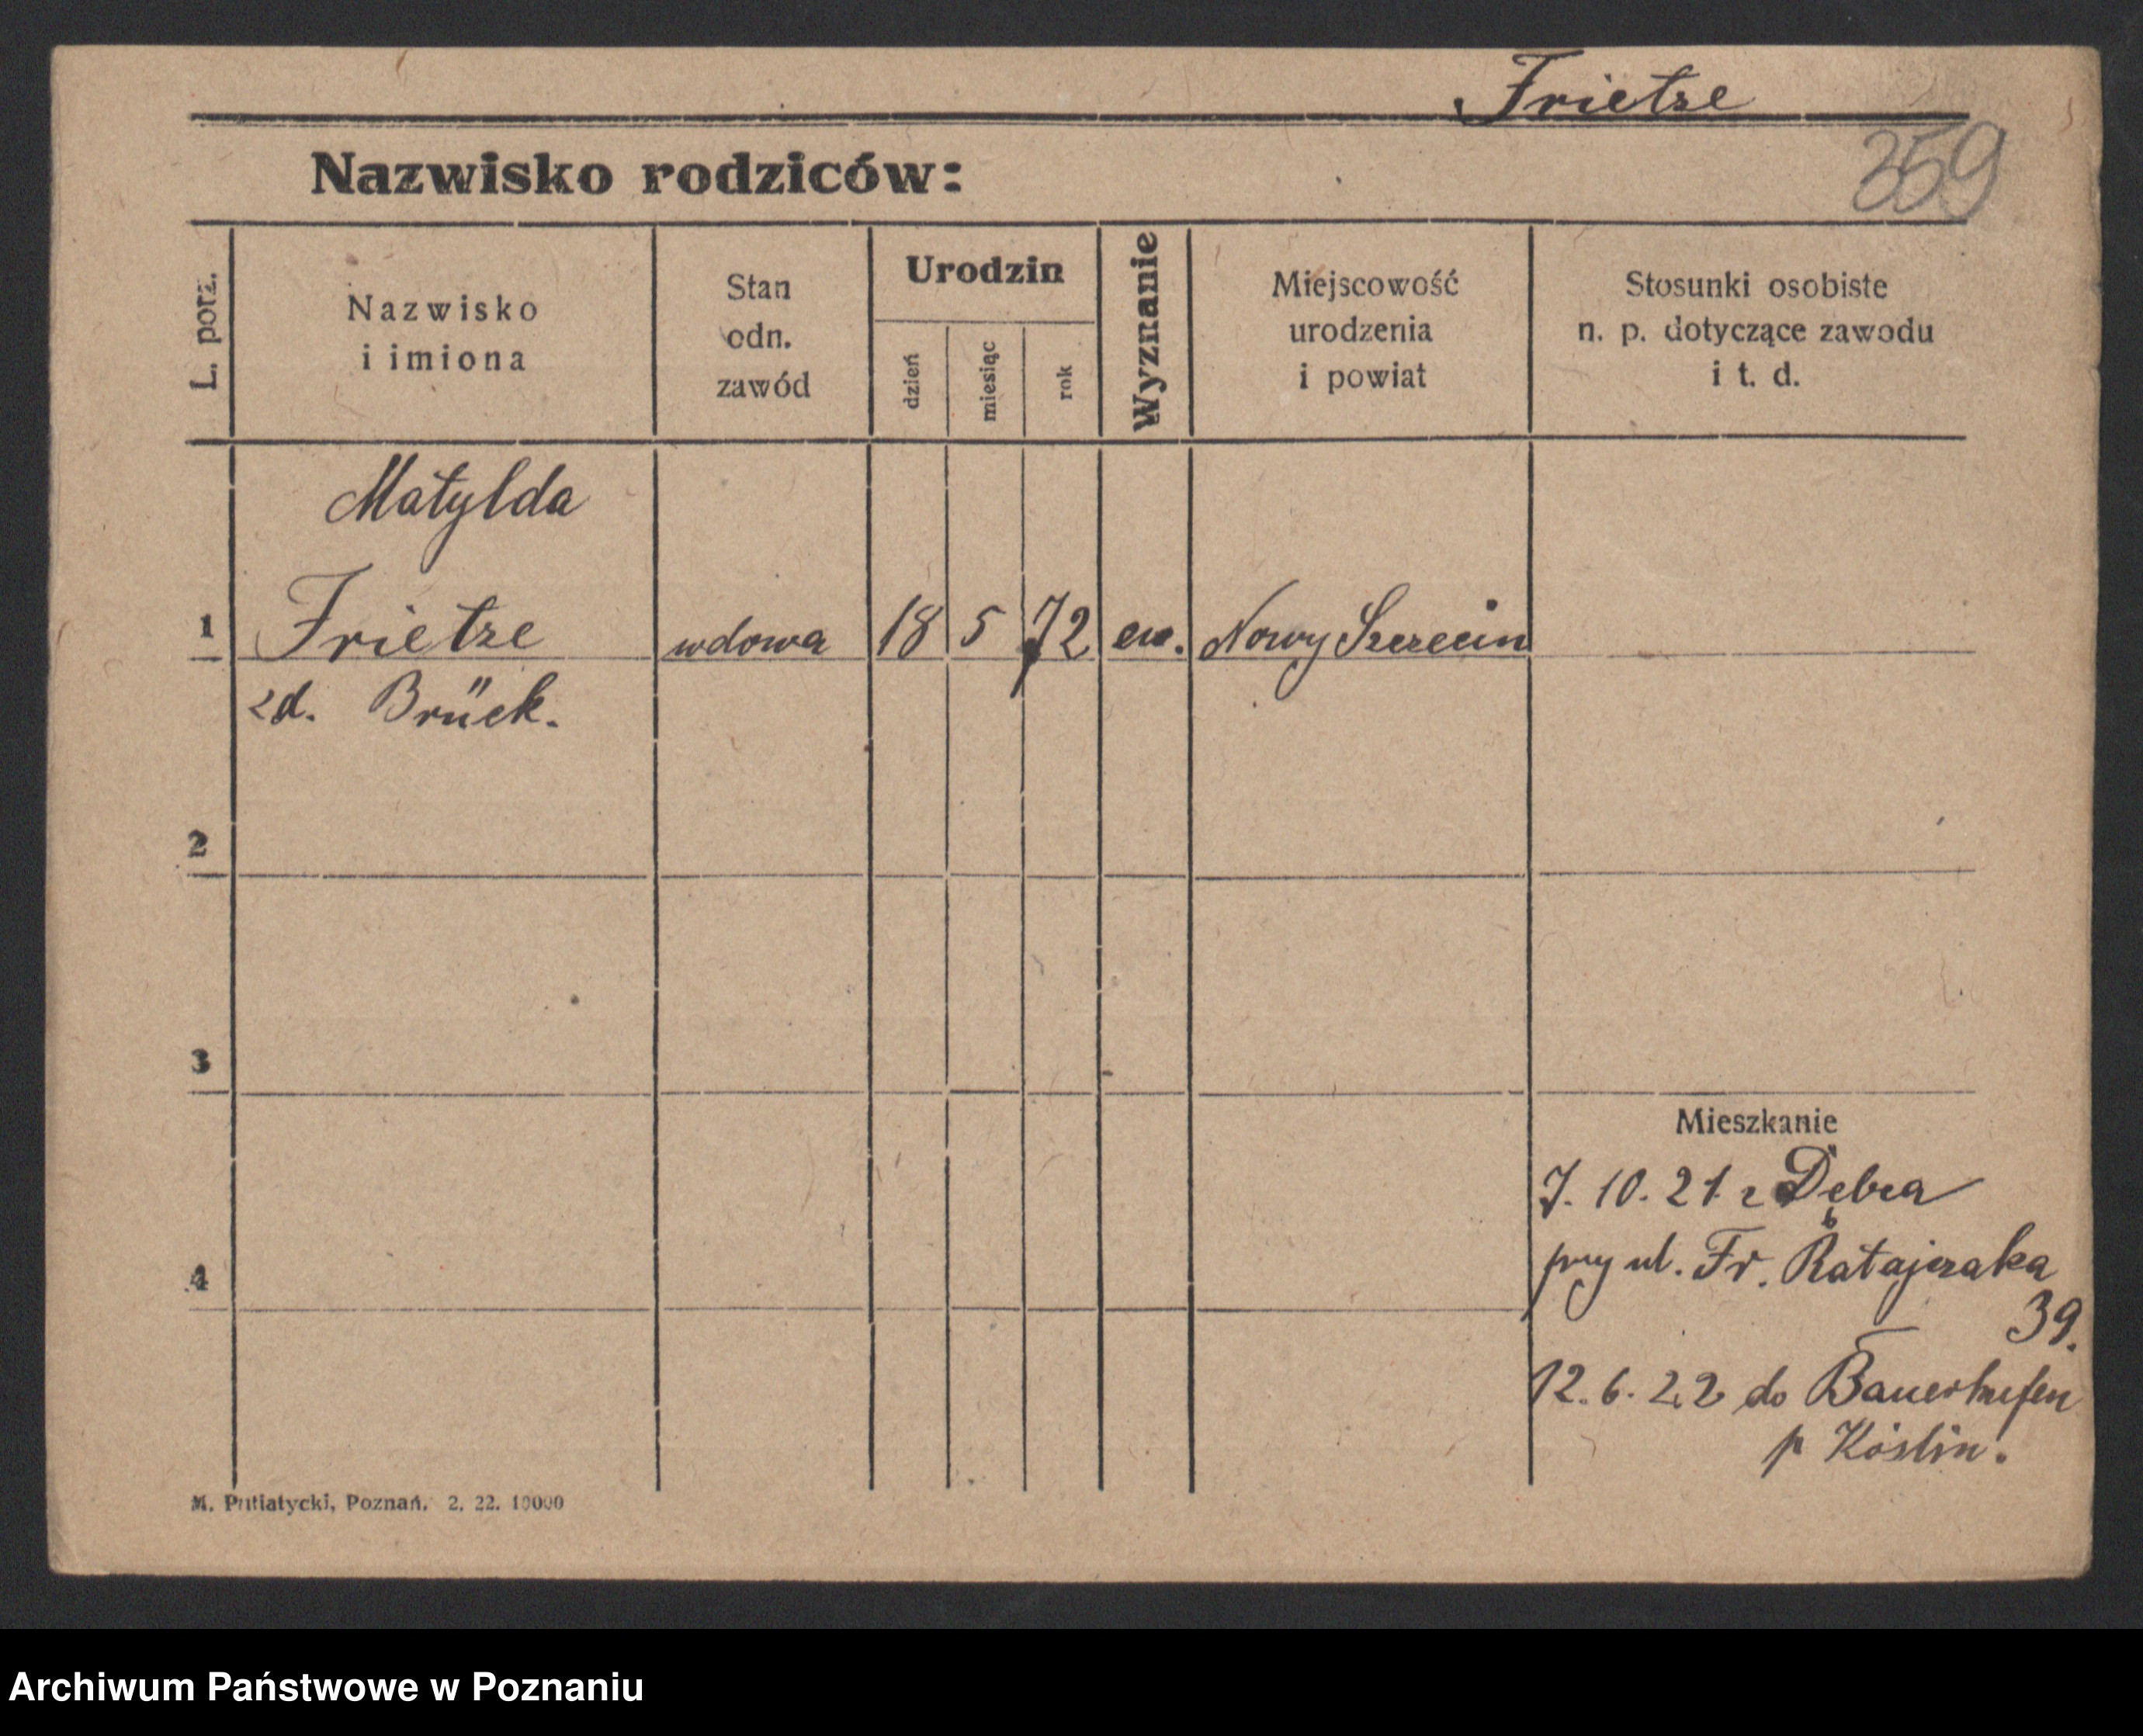 Frietze
359
Nazwisko rodziców:
L. porz.
Nazwisko
i imiona
Stan
odn.
zawód
Urodzin
dzień
miesiąc
rok
Wyznanie
Miejscowość
urodzenia
i powiat
Stosunki osobiste
n. p. dotyczące zawodu
i t. d.
Matylda
1 Frietze wdowa 18 5 72 ew. Nowy Szczecin
zd. Brück.
2
3
Mieszkanie
7. 10. 21. z Dębca
przy ul. Fr. Ratajczaka
4
39.
12. 6. 22 do Bauerhufen
p Köslin.
M. Putiatycki, Poznań. 2. 22. 10000
Archiwum Państwowe w Poznaniu